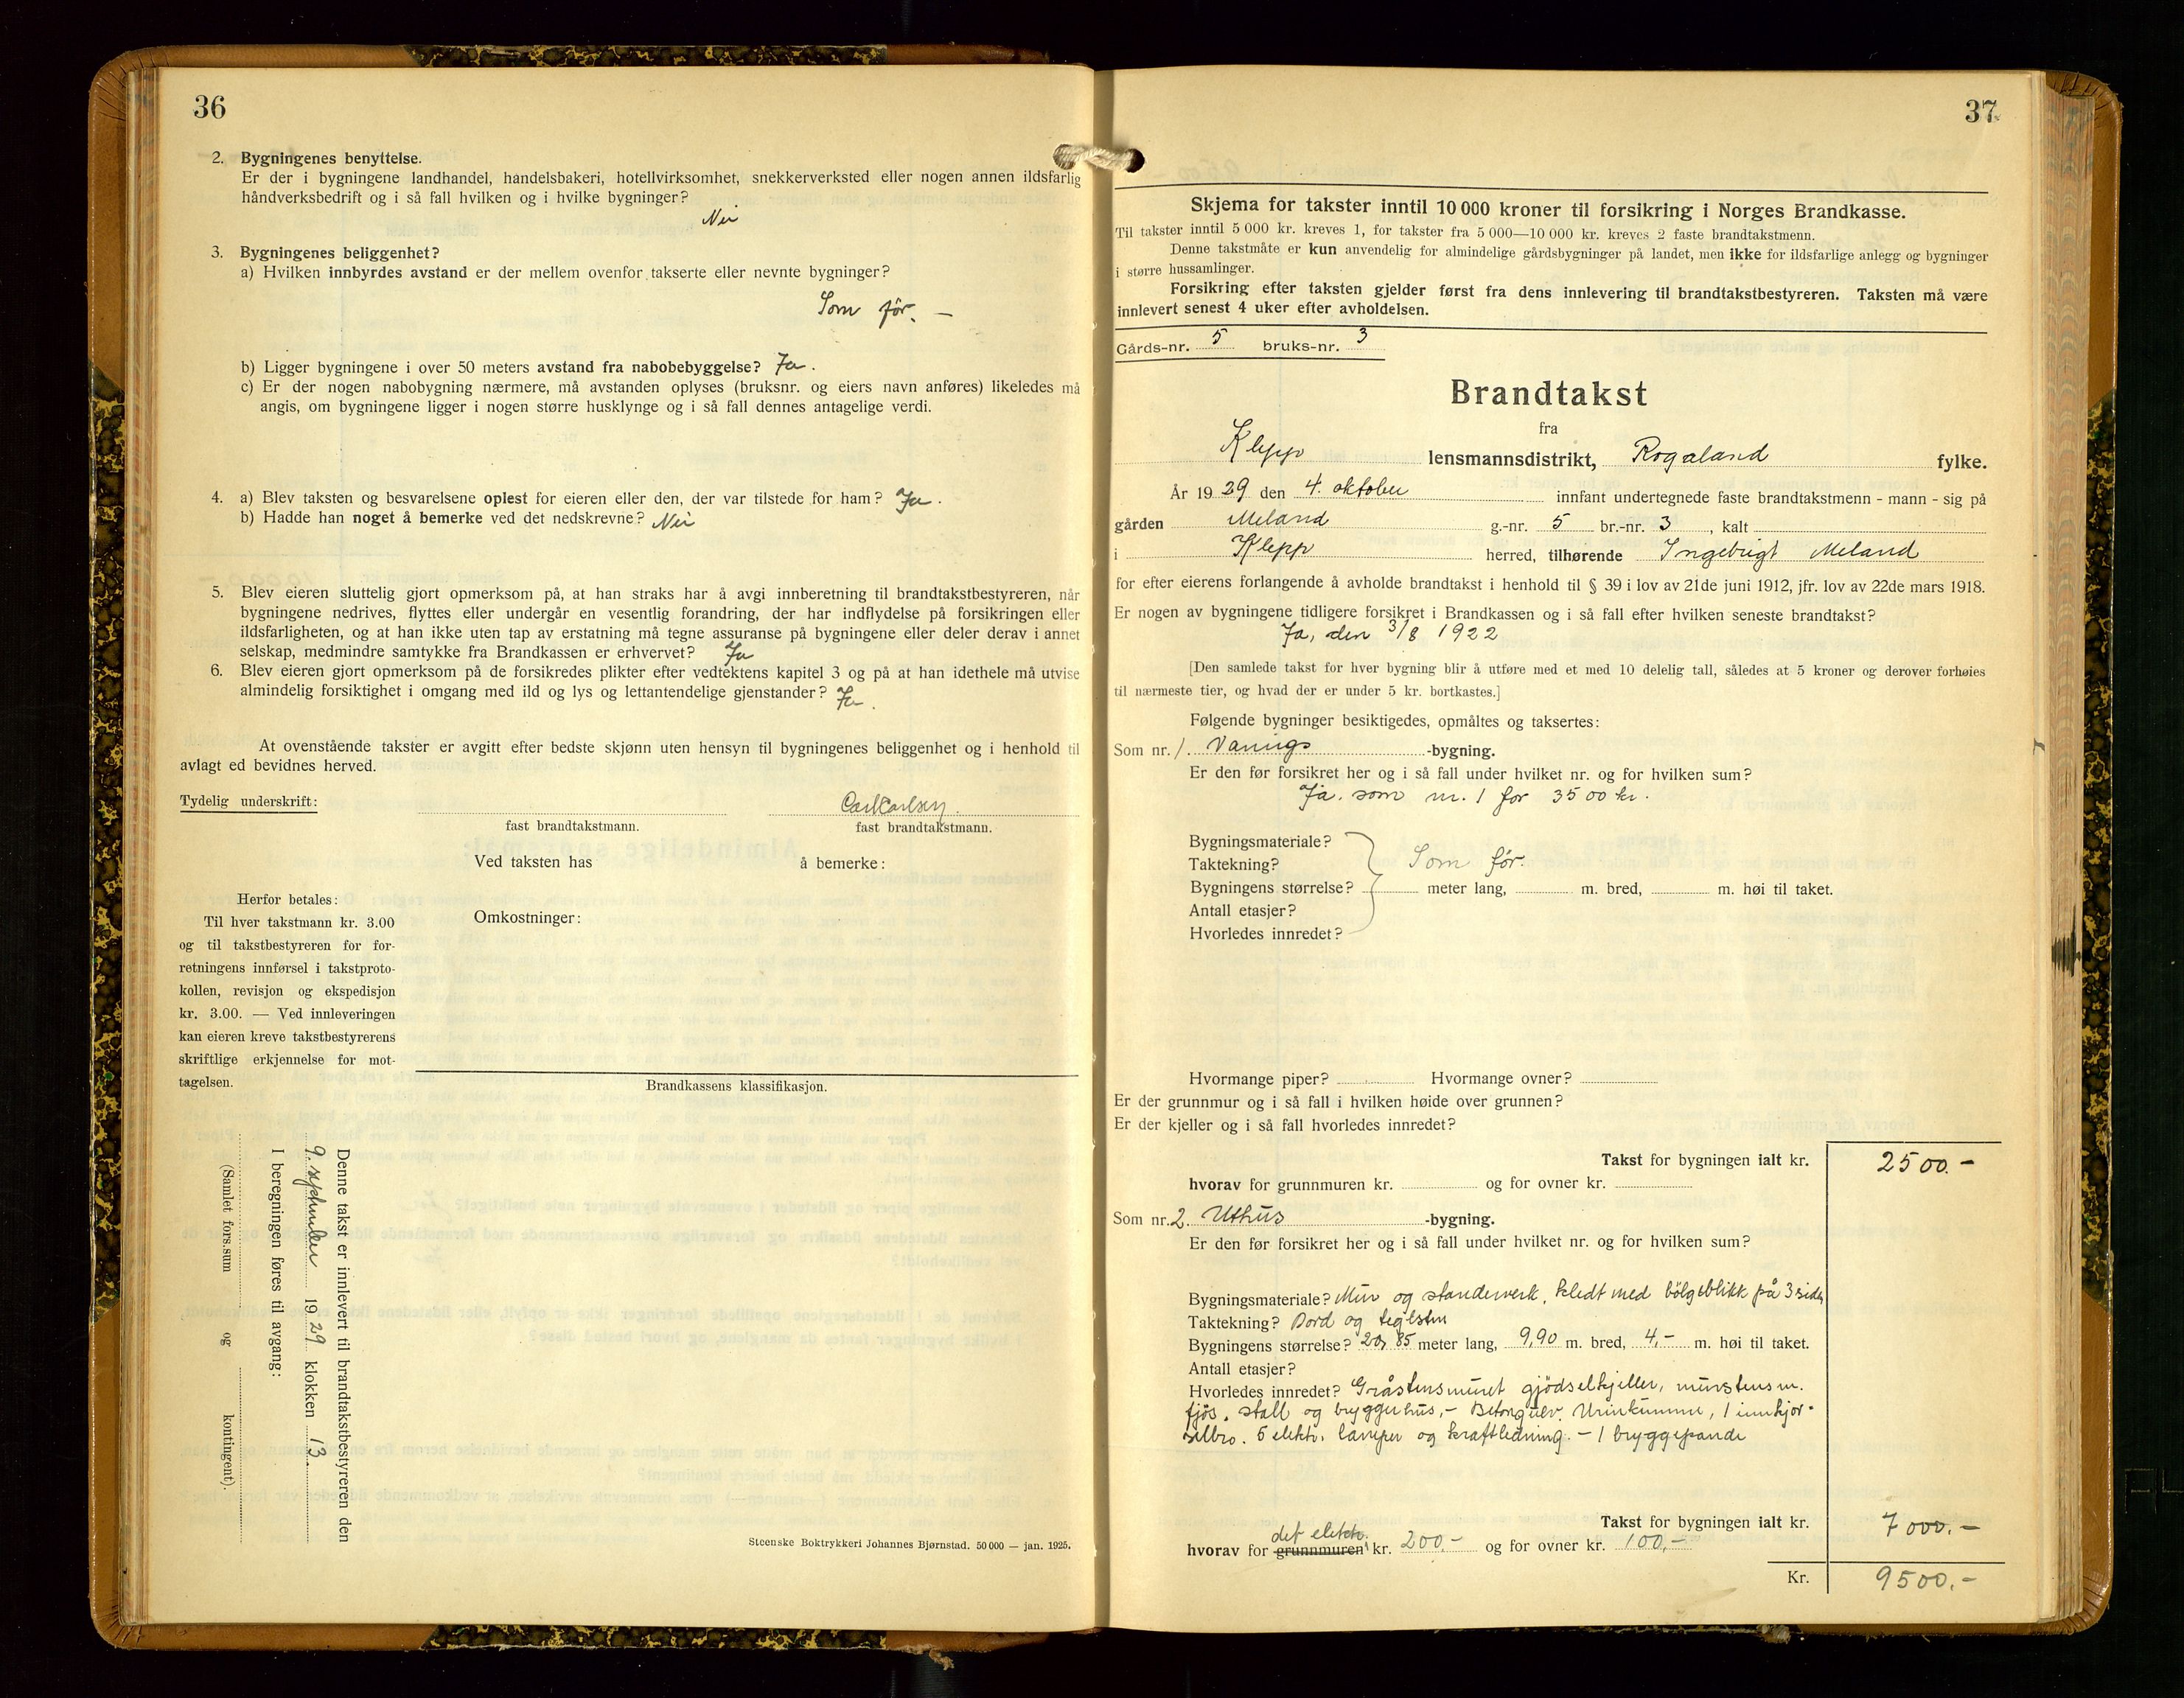 36
2. Bygningenes benyttelse.
Er der i bygningene landhandel, handelsbakeri, hotellvirksomhet, snekkerverksted eller nogen annen ildsfarlig
håndverksbedrift og i så fall hvilken og i hvilke bygninger?
Nei
3. Bygningenes beliggenhet?
a) Hvilken innbyrdes avstand er der mellem ovenfor takserte eller nevnte bygninger?
Som før. —
b) Ligger bygningene i over 50 meters avstand fra nabobebyggelse? Ja.
c) Er der nogen nabobygning nærmere, må avstanden oplyses (bruksnr. og eiers navn anføres) likeledes må
angis, om bygningene ligger i nogen større husklynge og i så fall dennes antagelige verdi.
4. a) Blev taksten og besvarelsene oplest for eieren eller den, der var tilstede for ham? Ja.
b) Hadde han noget å bemerke ved det nedskrevne? Nei
5. Blev eieren sluttelig gjort opmerksom på, at han straks har å avgi innberetning til brandtakstbestyreren, når
bygningene nedrives, flyttes eller undergår en vesentlig forandring, der har indflydelse på forsikringen eller
ildsfarligheten, og at han ikke uten tap av erstatning må tegne assuranse på bygningene eller deler derav i annet
selskap, medmindre samtykke fra Brandkassen er erhvervet? Ja
6. Blev eieren gjort opmerksom på de forsikredes plikter efter vedtektens kapitel 3 og på at han idethele må utvise
almindelig forsiktighet i omgang med ild og lys og lettantendelige gjenstander? Ja.
At ovenstående takster er avgitt efter bedste skjønn uten hensyn til bygningenes beliggenhet og i henhold til
avlagt ed bevidnes herved.
Tydelig underskrift:
Carl Carlsen.
fast brandtakstmann. fast brandtakstmann.
Ved taksten has å bemerke:
Herfor betales:
Til hver takstmann kr. 3.00
og til takstbestyreren for for-
retningens innførsel i takstproto-
kollen, revisjon og ekspedisjon
kr. 3.00. — Ved innleveringen
kan eieren kreve takstbestyrerens
skriftlige erkjennelse for mot-
tagelsen.
Omkostninger:
Brandkassens klassifikasjon.
Denne takst er innlevert til brandtakstbestyreren den
9. september 1929 klokken 13.
I beregningen føres til avgang:
(Samlet fors.sum og kontingent).
Steenske Boktrykkeri Johannes Bjørnstad. 50 000 — jan. 1925.
37
Skjema for takster inntil 10 000 kroner til forsikring i Norges Brandkasse.
Til takster inntil 5 000 kr. kreves 1, for takster fra 5 000—10 000 kr. kreves 2 faste brandtakstmenn.
Denne takstmåte er kun anvendelig for almindelige gårdsbygninger på landet, men ikke for ildsfarlige anlegg og bygninger
i større hussamlinger.
Forsikring efter taksten gjelder først fra dens innlevering til brandtakstbestyreren. Taksten må være
innlevert senest 4 uker efter avholdelsen.
Gårds-nr. 5 bruks-nr. 3
Brandtakst
fra
Klepp lensmannsdistrikt, Rogaland fylke.
År 1929 den 4. oktober innfant undertegnede faste brandtakstmenn - mann - sig på
gården Meland g.-nr. 5 br.-nr. 3, kalt
i Klepp herred, tilhørende Ingebrigt Meland
for efter eierens forlangende å avholde brandtakst i henhold til § 39 i lov av 21de juni 1912, jfr. lov av 22de mars 1918.
Er nogen av bygningene tidligere forsikret i Brandkassen og i så fall efter hvilken seneste brandtakst?
Ja, den 3/8 1922
[Den samlede takst for hver bygning blir å utføre med et med 10 delelig tall, således at 5 kroner og derover forhøies
til nærmeste tier, og hvad der er under 5 kr. bortkastes.]
Følgende bygninger besiktigedes, opmåltes og taksertes:
Som nr. 1. Vånings -bygning.
Er den før forsikret her og i så fall under hvilket nr. og for hvilken sum?
Ja. som nr. 1 for 3500 kr.
Bygningsmateriale?
Taktekning? Som før.
Bygningens størrelse? meter lang, m. bred, m. høi til taket.
Antall etasjer?
Hvorledes innredet?
Hvormange piper? Hvormange ovner?
Er der grunnmur og i så fall i hvilken høide over grunnen?
Er der kjeller og i så fall hvorledes innredet?
Takst for bygningen ialt kr. 2500.-
hvorav for grunnmuren kr. og for ovner kr.
Som nr. 2. Uthus -bygning.
Er den før forsikret her og i så fall under hvilket nr. og for hvilken sum?
Bygningsmateriale? Mur og standerverk, kledt med bølgeblikk på 3 sider
Taktekning? Bord og teglsten
Bygningens størrelse? 20,85 meter lang, 9,90 m. bred, 4,- m. høi til taket.
Antall etasjer?
Hvorledes innredet? Gråstensmuret gjødselkjeller, murstensm.
fjøs, stall og bryggerhus, - Betongulv. Urinkumme, 1 innkjør-
selbro. 5 elektr. lamper og kraftledning. - 1 bryggepande
Takst for bygningen ialt kr. 7000.-
det elektr.
hvorav for grunnmuren kr. 200,- og for ovner kr. 100,-
Kr. 9500.-